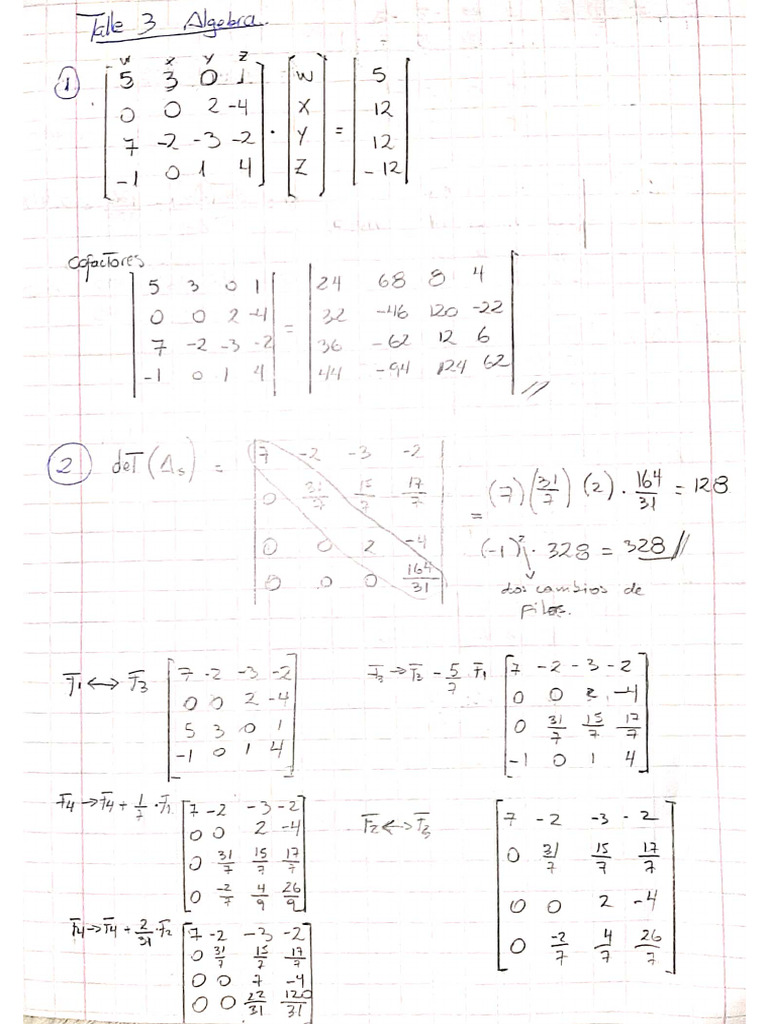 Talle 3 Algebra.
W X Y Z
① [5 3 0 1] [W] [5]
[0 0 2 -4] [X] [12]
[7 -2 -3 -2] · [Y] = [12]
[-1 0 1 4] [Z] [-12]
Cofactores
|5 3 0 1| |24 68 8 4|
|0 0 2 -4| = |32 -46 120 -22|
|7 -2 -3 -2| |36 -62 12 6|
|-1 0 1 4| |44 -94 124 62| //
② deT(A₅) = |7 -2 -3 -2|
|0 31/7 15/7 17/7|
|0 0 2 -4|
|0 0 0 164/31|
= (7)(31/7)(2)·164/31 = 128
(-1)²·328 = 328//
dos cambios de
Filas.
F1↔F3 [7 -2 -3 -2]
[0 0 2 -4]
[5 3 0 1]
[-1 0 1 4]
F3→F3 - 5/7 F1 [7 -2 -3 -2]
[0 0 2 -4]
[0 31/7 15/7 17/7]
[-1 0 1 4]
F4→F4 + 1/7·F1 [7 -2 -3 -2]
[0 0 2 -4]
[0 31/7 15/7 17/7]
[0 -2/7 4/9 26/9]
F2↔F3 [7 -2 -3 -2]
[0 31/7 15/7 17/7]
[0 0 2 -4]
[0 -2/7 4/7 26/7]
F4→F4 + 2/31·F2 [7 -2 -3 -2]
[0 31/7 15/7 17/7]
[0 0 7 -4]
[0 0 22/31 120/31]